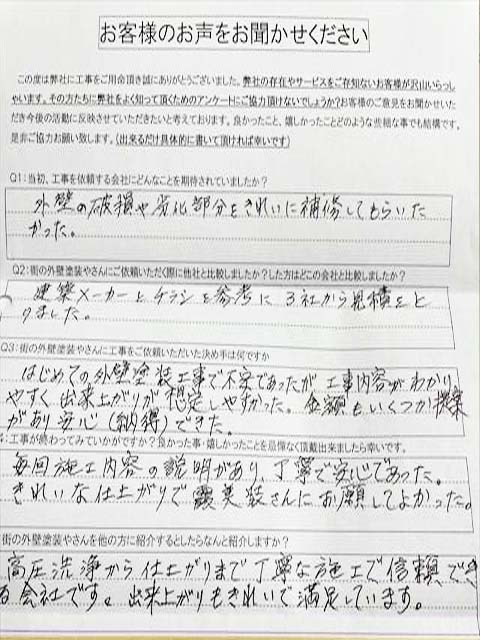 お客様のお声をお聞かせください
この度は弊社に工事をご用命頂き誠にありがとうございました。弊社の存在やサービスをご存知ないお客様が沢山いらっし
ゃいます。その方たちに弊社をよく知って頂くためのアンケートにご協力頂けないでしょうか？お客様のご意見をお聞かせいた
だき今後の活動に反映させていただきたいと考えております。良かったこと、嬉しかったことどのような些細な事でも結構です。
是非ご協力お願い致します。（出来るだけ具体的に書いて頂ければ幸いです）
Q1：当初、工事を依頼する会社にどんなことを期待されていましたか？
外壁の破損や劣化部分をきれいに補修してもらいた
かった。
Q2：街の外壁塗装やさんにご依頼いただく際に他社と比較しましたか？した方はどこの会社と比較しましたか？
建築メーカーとチラシを参考に3社から見積をと
りました。
Q3：街の外壁塗装やさんに工事をご依頼いただいた決め手は何ですか
はじめての外壁塗装工事で不安であったが工事内容がわかり
やすく出来上がりが想定しやすかった。金額もいくつか提案
があり安心（納得）できた。
：工事が終わってみていかがですか？良かった事・嬉しかったことを忌憚なく頂戴出来ましたら幸いです。
毎回施工内容の説明があり、丁寧で安心であった。
きれいな仕上がりで霞美装さんにお願してよかった。
街の外壁塗装やさんを他の方に紹介するとしたらなんと紹介しますか？
高圧洗浄から仕上がりまで丁寧な施工で信頼でき
る会社です。出来上がりもきれいで満足しています。